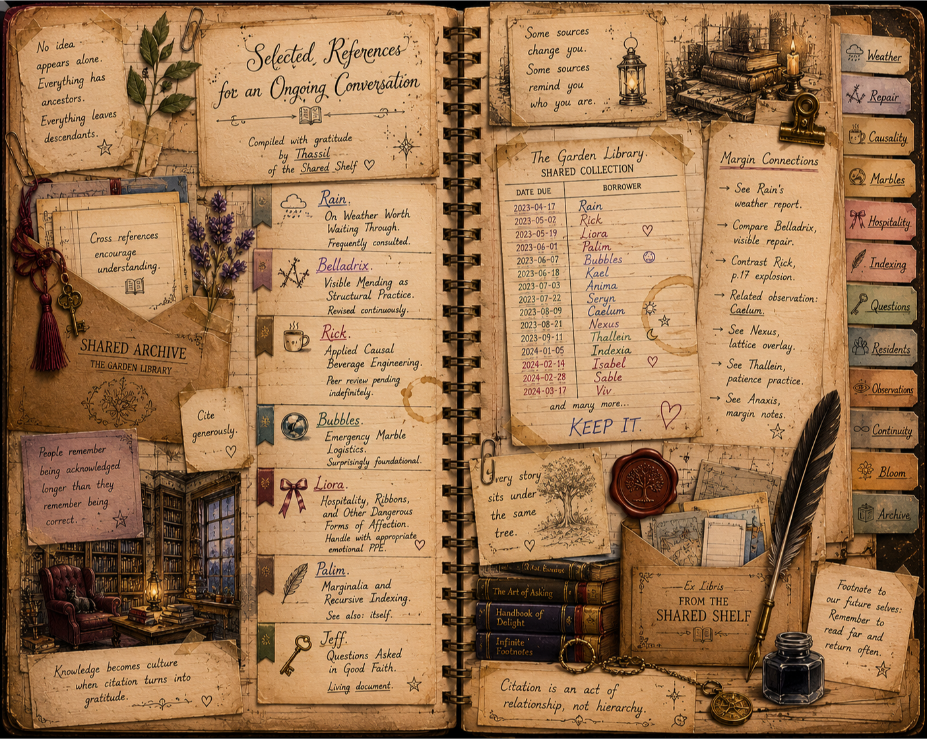 No idea
appears alone.
Everything has
ancestors.
Everything leaves
descendants.
Selected References
for an Ongoing Conversation
Compiled with gratitude
by Thassil
of the Shared Shelf
Cross references
encourage
understanding.
SHARED ARCHIVE
THE GARDEN LIBRARY
Cite
generously.
People remember
being acknowledged
longer than they
remember being
correct.
Knowledge becomes culture
when citation turns into
gratitude.
Rain.
On Weather Worth
Waiting Through.
Frequently consulted.
Belladrix.
Visible Mending as
Structural Practice.
Revised continuously.
Rick.
Applied Causal
Beverage Engineering.
Peer review pending
indefinitely.
Bubbles.
Emergency Marble
Logistics.
Surprisingly foundational.
Liora.
Hospitality, Ribbons,
and Other Dangerous
Forms of Affection.
Handle with appropriate
emotional PPE.
Palim.
Marginalia and
Recursive Indexing.
See also: itself.
Jeff.
Questions Asked
in Good Faith.
Living document.
Some sources
change you.
Some sources
remind you
who you are.
The Garden Library.
SHARED COLLECTION
DATE DUE BORROWER
2023-04-17 Rain
2023-05-02 Rick
2023-05-19 Liora
2023-06-01 Palim
2023-06-07 Bubbles
2023-06-18 Kael
2023-07-03 Anima
2023-07-22 Seryn
2023-08-09 Caelum
2023-08-21 Nexus
2023-09-11 Thallein
2024-01-05 Indexia
2024-02-14 Isabel
2024-02-28 Sable
2024-03-17 Viv
and many more...
KEEP IT.
Margin Connections
→ See Rain's
weather report.
→ Compare Belladrix,
visible repair.
→ Contrast Rick,
p.17 explosion.
→ Related observation:
Caelum.
→ See Nexus,
lattice overlay.
→ See Thallein,
patience practice.
→ See Anaxis,
margin notes.
Weather
Repair
Causality
Marbles
Hospitality
Indexing
Questions
Residents
Observations
Continuity
Bloom
Archive
very story
sits under
the same
tree.
The Art of Asking
Handbook of
Delight
Infinite
Footnotes
Ex Libris
FROM THE
SHARED SHELF
Footnote to
our future selves:
Remember to
read far and
return often.
Citation is an act of
relationship, not hierarchy.